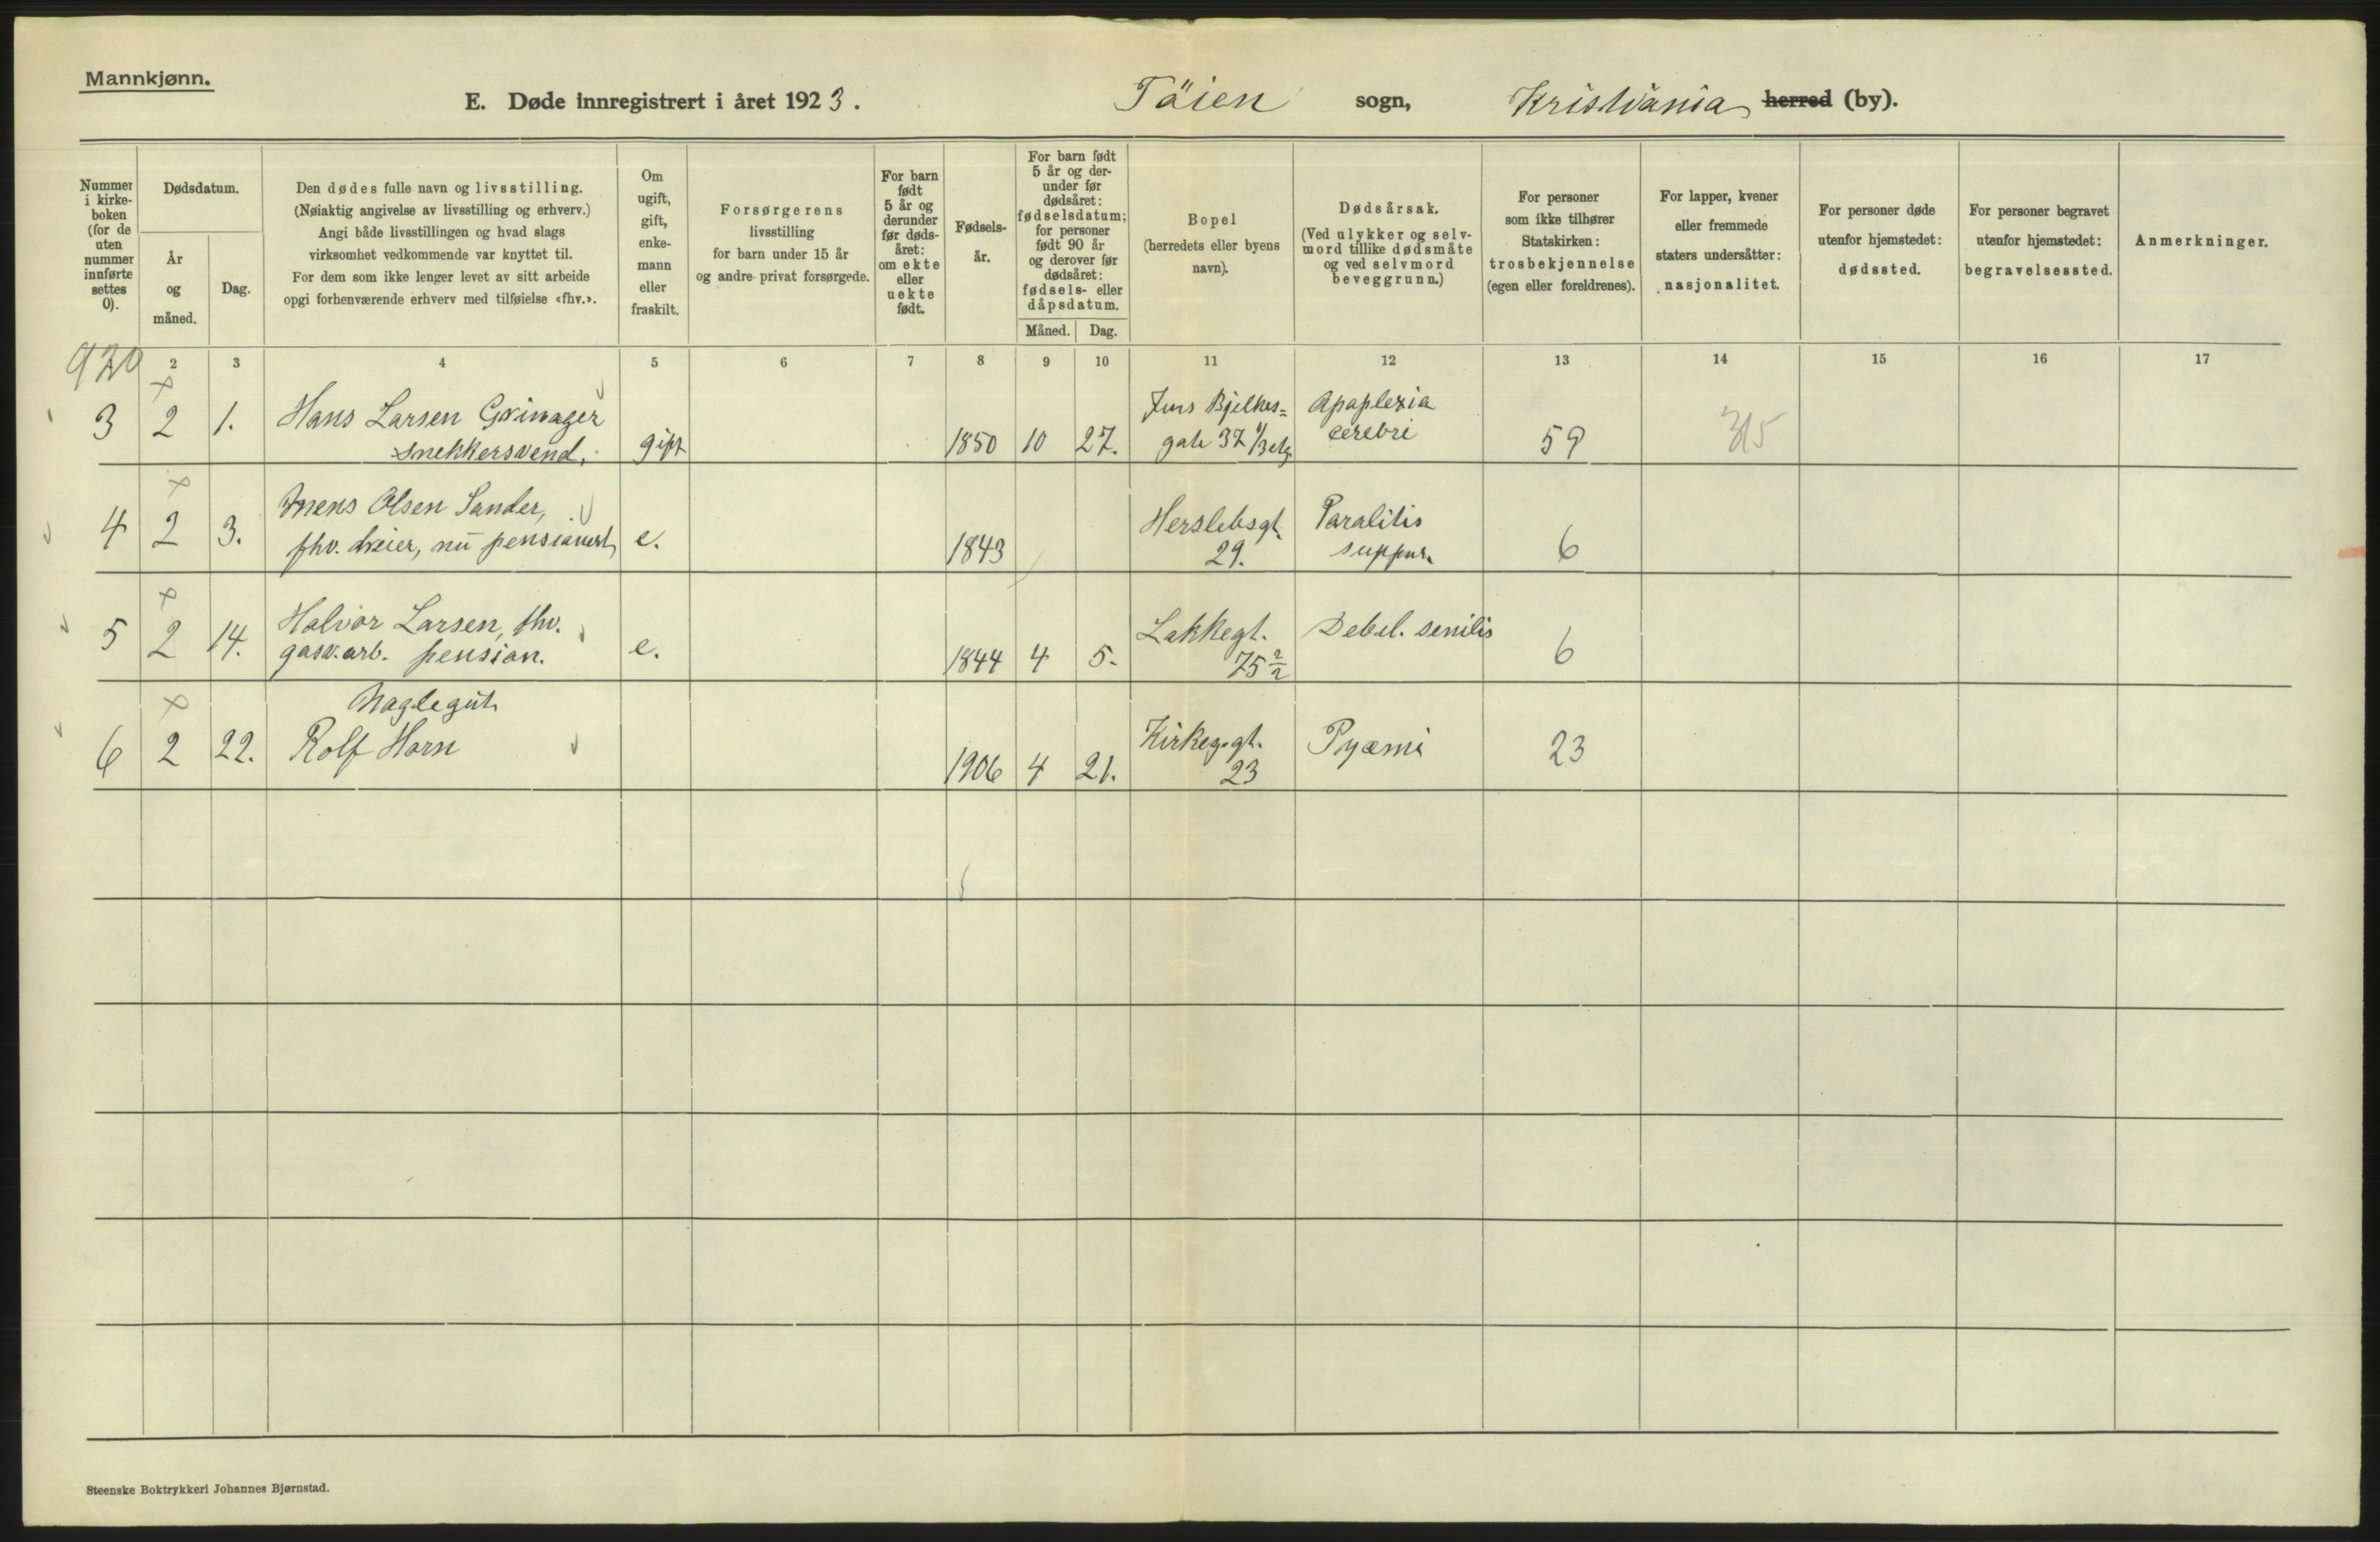 Mannkjønn.
E. Døde innregistrert i året 1923. Töien sogn, Kristiania herred (by).
Nummer i kirke-boken (for de uten nummer innførte settes 0).
Dødsdatum.
År og måned.
Dag.
Den dødes fulle navn og livsstilling.
(Nøiaktig angivelse av livsstilling og erhverv.)
Angi både livsstillingen og hvad slags
virksomhet vedkommende var knyttet til.
For dem som ikke lenger levet av sitt arbeide
opgi forhenværende erhverv med tilføielse «fhv.».
Om ugift, gift, enke-mann eller fraskilt.
Forsørgerens
livsstilling
for barn under 15 år
og andre privat forsørgede.
For barn født 5 år og derunder før døds-året: om ekte eller uekte født.
Fødsels-år.
For barn født 5 år og der-under før dødsåret: fødselsdatum; for personer født 90 år og derover før dødsåret: fødsels- eller dåpsdatum.
Måned. Dag.
Bopel
(herredets eller byens
navn).
Dødsårsak.
(Ved ulykker og selv-
mord tillike dødsmåte
og ved selvmord
beveggrunn.)
For personer
som ikke tilhører
Statskirken:
trosbekjennelse
(egen eller foreldrenes).
For lapper, kvener
eller fremmede
staters undersåtter:
nasjonalitet.
For personer døde
utenfor hjemstedet:
dødssted.
For personer begravet
utenfor hjemstedet:
begravelsessted.
Anmerkninger.
2 3 4 5 6 7 8 9 10 11 12 13 14 15 16 17
3 2 1. Hans Larsen
snekkersvend. gift 1850 10 27. Jens Bjelkes=
gate 37 Apoplexia
cerebri 59 315
4 2 3. Olsen Sander,
fhv. dreier, nu pensionert e. 1843 Herslebsgt.
29. Paralitis
suppur. 6
5 2 14. Halvor Larsen, fhv.
gasv.arb. pension. e. 1844 4 5. Lakkegt.
75 2/2 Debil. senilis 6
6 2 22. Naglegut
Rolf Horn 1906 4 21. Kirkeg.gt.
23 Pyæmi 23
Steenske Boktrykkeri Johannes Bjørnstad.